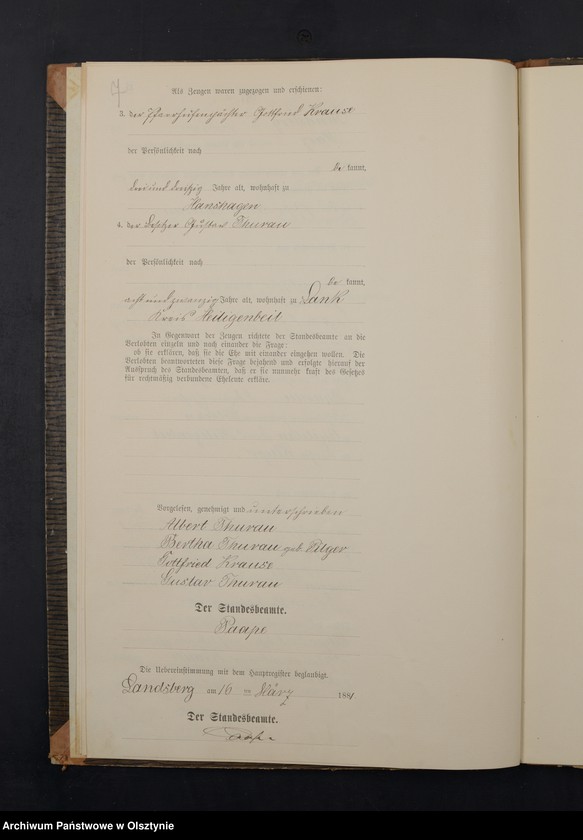 Als Zeugen waren zugezogen und erschienen:
3. der Pfarrhufenpächter Gottfried Krause
der Persönlichkeit nach
be kannt,
drei und dreißig Jahre alt, wohnhaft zu
Hanshagen
4. der Besitzer Gustav Thurau
der Persönlichkeit nach
be kannt,
acht und zwanzig Jahre alt, wohnhaft zu Lank
Kreis Heiligenbeil
In Gegenwart der Zeugen richtete der Standesbeamte an die
Verlobten einzeln und nach einander die Frage:
ob sie erklären, daß sie die Ehe mit einander eingehen wollen. Die
Verlobten beantworteten diese Frage bejahend und erfolgte hierauf der
Ausspruch des Standesbeamten, daß er sie nunmehr kraft des Gesetzes
für rechtmäßig verbundene Eheleute erkläre.
Vorgelesen, genehmigt und unterschrieben
Albert Thurau
Bertha Thurau geb. Pilger
Gottfried Krause
Gustav Thurau
Der Standesbeamte.
Paape
Die Uebereinstimmung mit dem Hauptregister beglaubigt.
Landsberg am 16 ten März 1881
Der Standesbeamte.
Paape
Archiwum Państwowe w Olsztynie